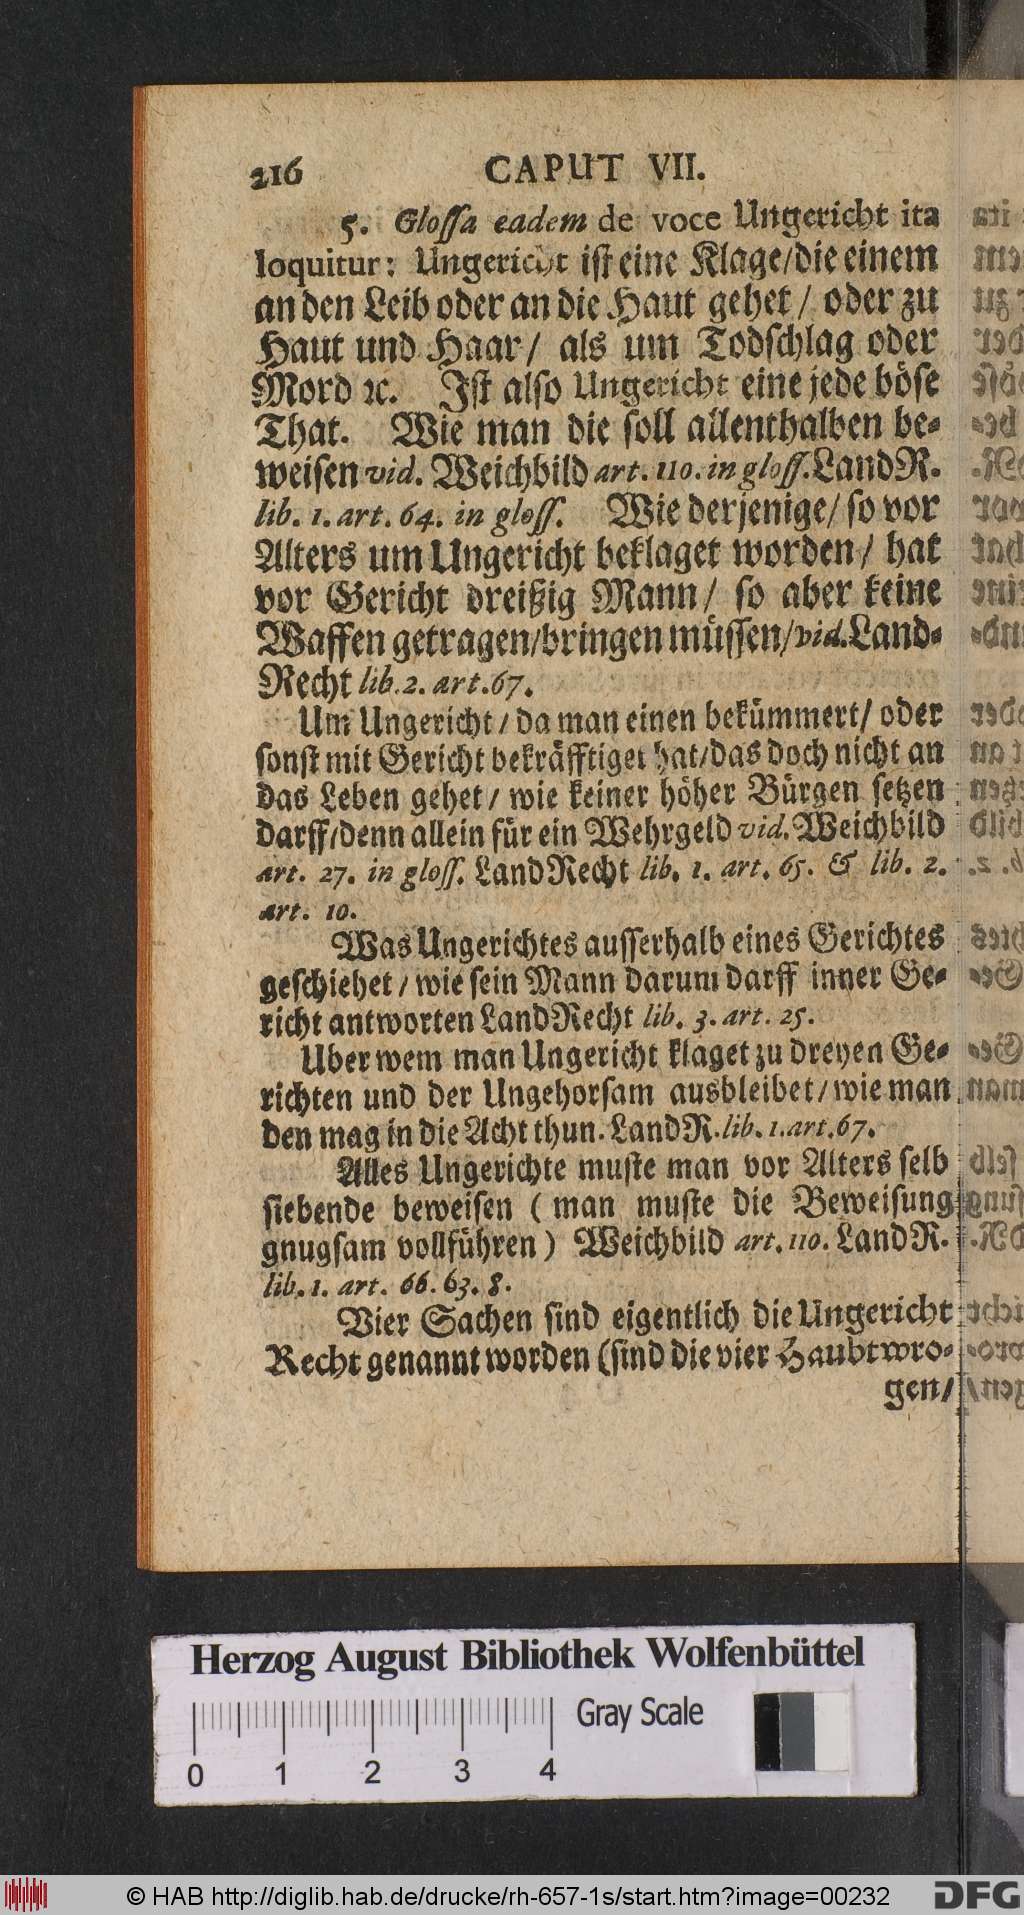 216 CAPUT VII.
5. Glossa eadem de voce Ungericht ita
loquitur: Ungericht ist eine Klage/die einem
an den Leib oder an die Haut gehet / oder zu
Haut und Haar/ als um Todschlag oder
Mord ꝛc. Ist also Ungericht eine jede böse
That. Wie man die soll allenthalben be-
weisen vid. Weichbild art. 110. in gloss. LandR.
lib. 1. art. 64. in gloss. Wie derjenige/ so vor
Alters um Ungericht beklaget worden/ hat
vor Gericht dreißig Mann/ so aber keine
Waffen getragen/bringen müssen/vid. Land-
Recht lib. 2. art. 67.
Um Ungericht / da man einen bekümmert/ oder
sonst mit Gericht bekräfftiget hat/das doch nicht an
das Leben gehet/ wie keiner höher Bürgen setzen
darff/denn allein für ein Wehrgeld vid. Weichbild
art. 27. in gloss. LandRecht lib. 1. art. 65. & lib. 2.
art. 10.
Was Ungerichtes ausserhalb eines Gerichtes
geschiehet / wie sein Mann darum darff inner Ge-
richt antworten LandRecht lib. 3. art. 25.
Uber wem man Ungericht klaget zu dreyen Ge-
richten und der Ungehorsam ausbleibet/ wie man
den mag in die Acht thun. LandR. lib. 1. art. 67.
Alles Ungerichte muste man vor Alters selb
siebende beweisen ( man muste die Beweisung
gnugsam vollführen ) Weichbild art. 110. LandR.
lib. 1. art. 66. 63. 8.
Vier Sachen sind eigentlich die Ungericht
Recht genannt worden (sind die vier Haubtwro-
gen/
Herzog August Bibliothek Wolfenbüttel
Gray Scale
0 1 2 3 4
© HAB http://diglib.hab.de/drucke/rh-657-1s/start.htm?image=00232
DFG